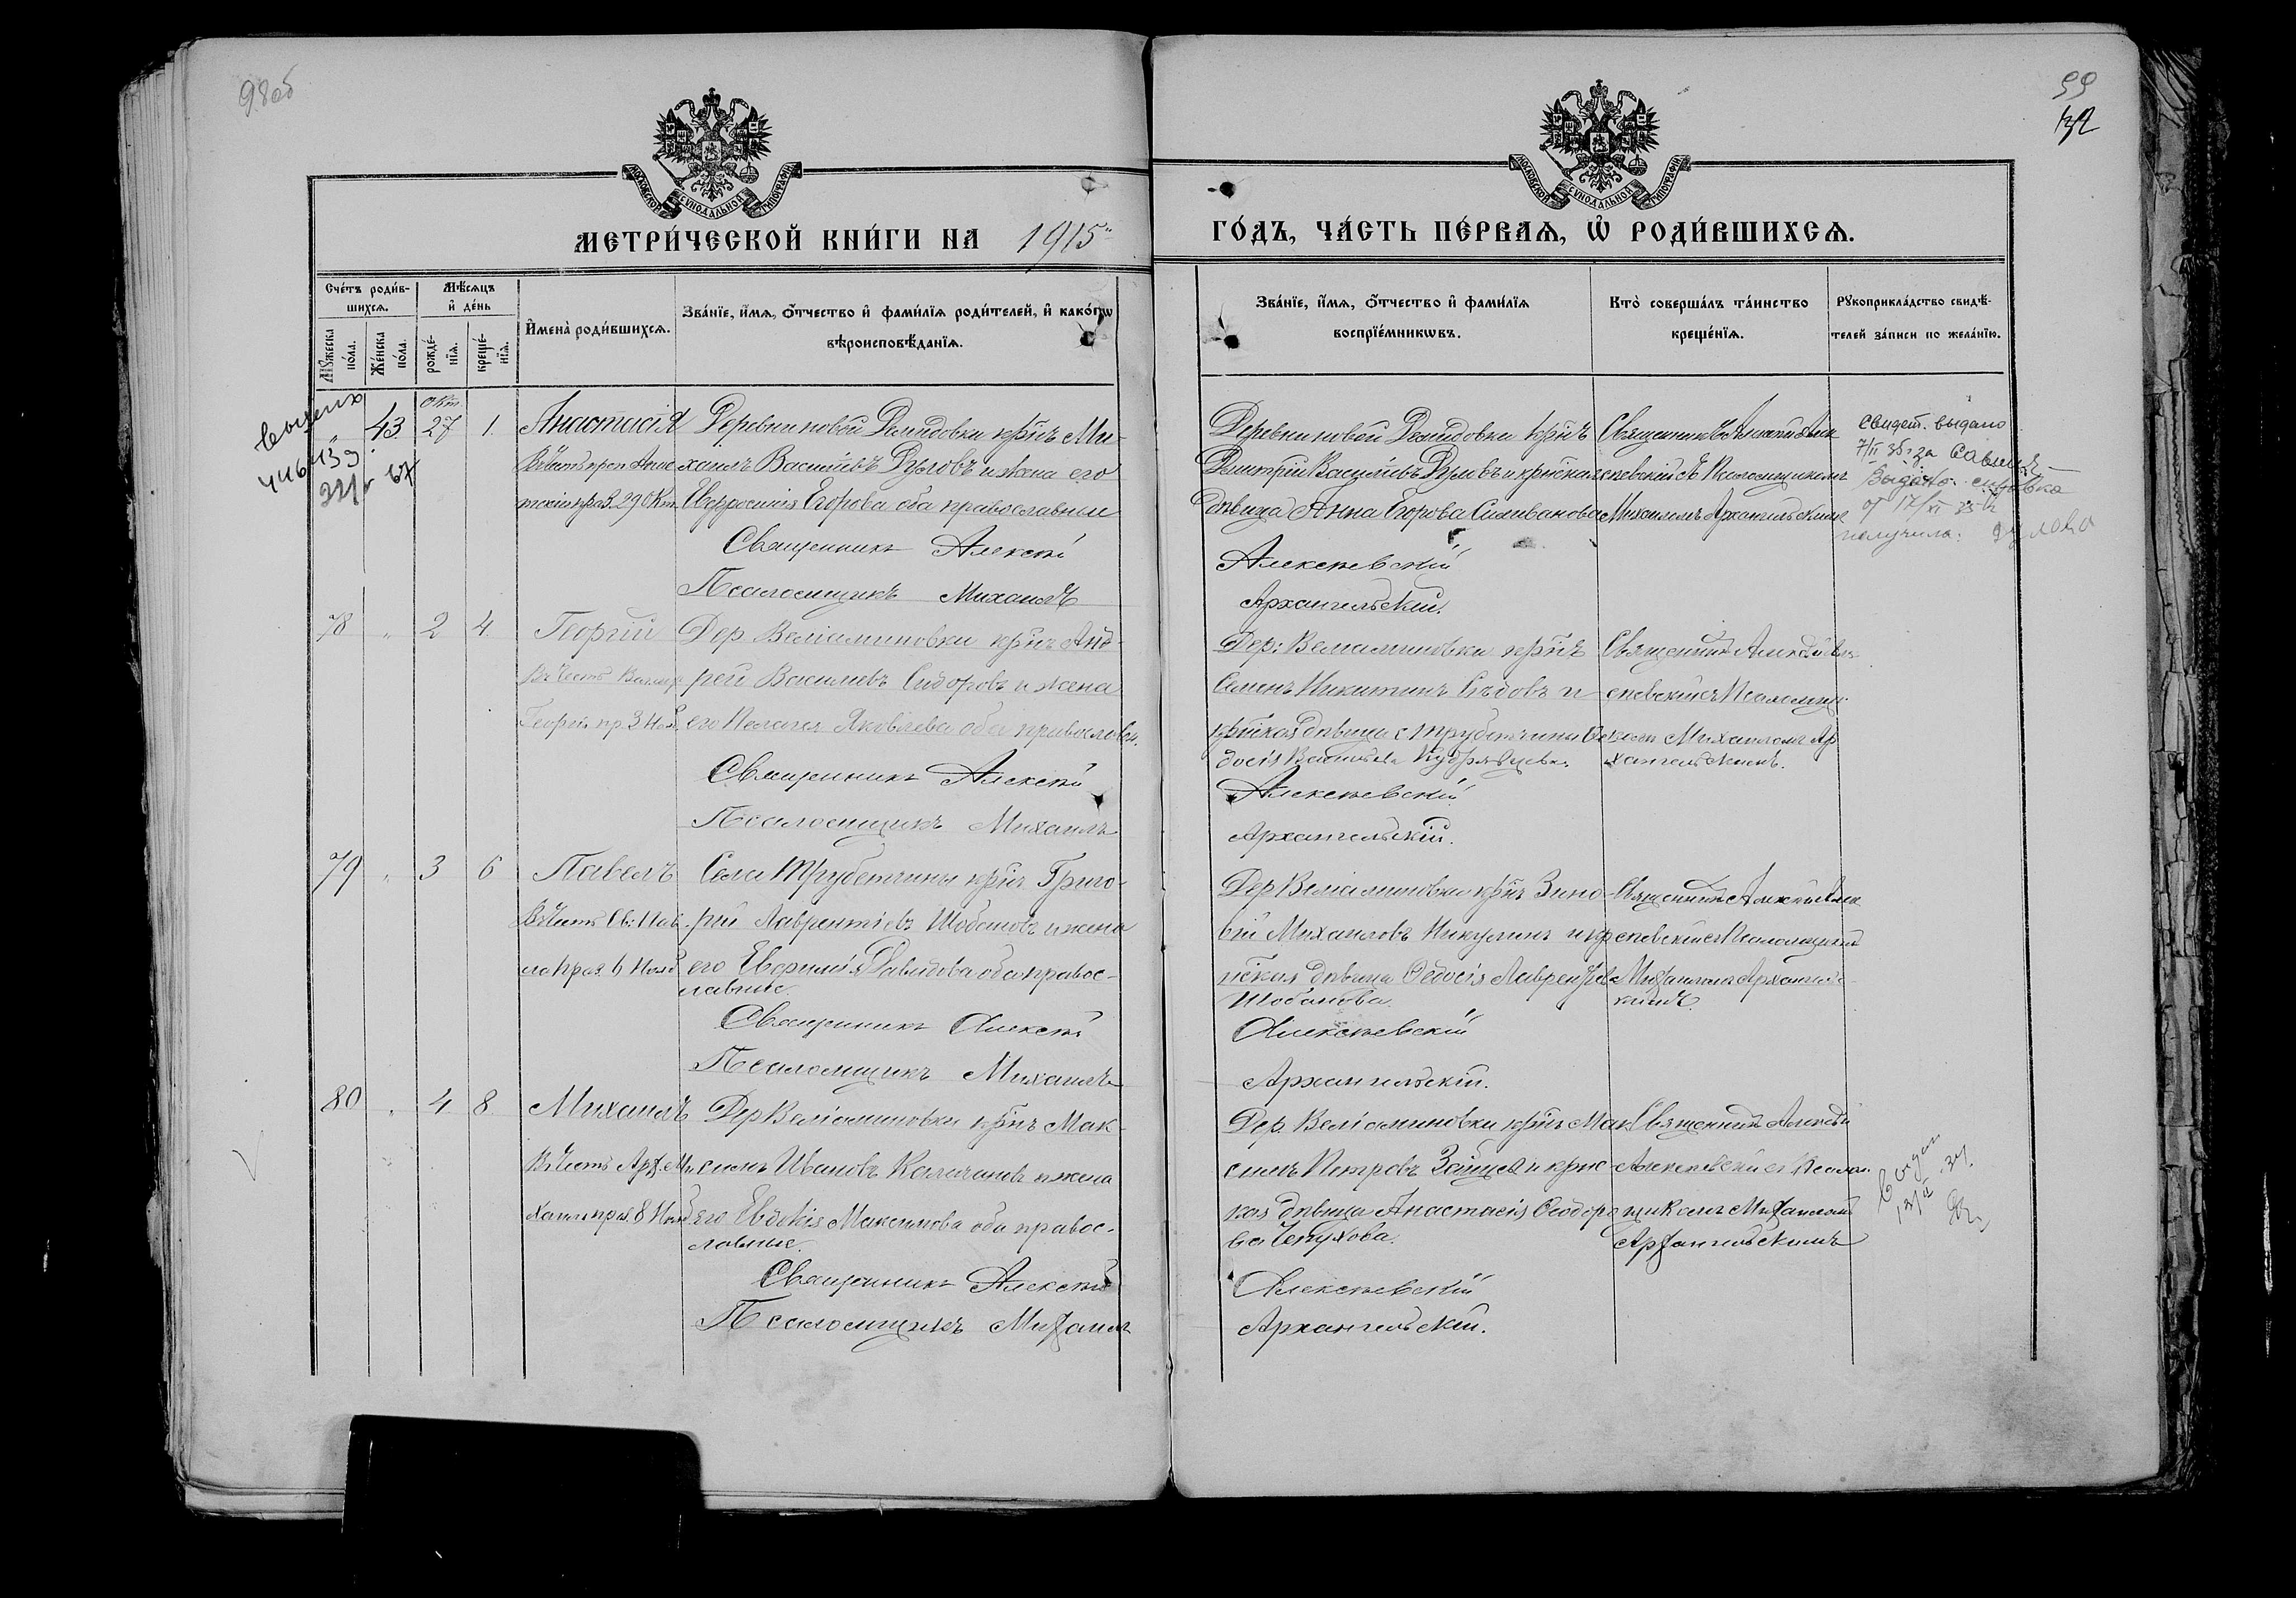 98об
99
132
МОСКОВСКОЙ СѴНОДАЛЬНОЙ ТИПОГРАФІИ
МОСКОВСКОЙ СѴНОДАЛЬНОЙ ТИПОГРАФІИ
МЕТРИ́ЧЕСКОЙ КНИ́ГИ НА 1915
ГО́ДЪ, ЧА́СТЬ ПЕ́РВАѦ, Ѡ҆ РОДИ́ВШИХСѦ.
Сче́тъ роди́в-
шихсѧ.
Мѣ́сѧцъ
и҆ де́нь
Мꙋ́жеска
по́ла.
Же́нска
по́ла.
рожде́-
нїѧ.
креще́-
нїѧ.
И҆мена̀ роди́вшихсѧ.
Зва́нїе, и҆́мѧ, ѻ҆́тчество и҆ фами́лїѧ роди́телей, и҆ како́гѡ
вѣроисповѣ́данїѧ.
Зва́нїе, и҆́мѧ, ѻ҆́тчество и҆ фами́лїѧ
воспрїе́мникѡвъ.
Кто̀ соверша́лъ та́инство
креще́нїѧ.
Рꙋкоприкла́дство свидѣ́-
телей за́писи по жела́нїю.
Окт
43 27 1. Анастасія
Деревни новой Демидовки кр҃нъ Ми-
хаилъ Васильевъ и жена его
Евфросинія Егорова оба православные
Священникъ Алексѣй
Псаломщикъ Михаилъ
Деревни новой Демидовки кр҃нъ
Дмитрій Васильевъ
дѣвица Анна Егорова Селиванова
Алексѣевскій
Архангельскій.
Священникъ Алексѣй Алек
сѣевскій съ Псаломщикомъ
Михаиломъ Архангельскимъ
Свидет. выдано
Выдано справка
получила.
78 " 2 4 Георгій
Въ честь Велмр
Георгія пр. 3 Нояб.
Дер Веліаминовки кр҃нъ Анд-
рей Васильевъ Сидоровъ и жена
его Пелагія Яковлева оба православн.
Священникъ Алексѣй
Псаломщикъ Михаилъ
Дер: Веліаминовки кр҃нъ
Семенъ Никитинъ Сѣдовъ и
кр҃нская дѣвица с Трубетчины Ѳе
досія Васильева Кудрявцева.
Алексѣевскій
Архангельскій.
Священникъ Алексѣй Але
ксѣевскій съ Псаломщи
комъ Михаиломъ Ар
хангельскимъ.
79 " 3 6 Павелъ
Въ честь Св: Пав
ла праз. 6 Нояб
Села Трубетчины кр҃нъ Григо-
рій Лаврентіевъ Шобановъ и жена
его Евфимія Давидова оба правос-
лавные.
Священникъ Алексѣй
Псаломщикъ Михаилъ
Дер Веліаминовки кр҃нъ Зино-
вій Михаиловъ Никулинъ и кр
нская дѣвица Ѳедосія Лаврентьева
Шобанова
Алексѣевскій
Архангельскій.
Священникъ Алексѣй Алек
сѣевскій съ Псаломщикомъ
Михаиломъ Архангельс-
кимъ.
80 " 4 8 Михаилъ
Въ честь Арх. Ми
хаила праз. 8 Нояб
Дер Веліаминовки кр҃нъ Мак-
симъ Ивановъ и жена
его Евдокія Максимова оба правос-
лавные.
Священникъ Алексѣй
Псаломщикъ Михаилъ
Дер. Веліаминовки кр҃нъ Мак
симъ Петровъ Зайцевъ и кр҃нс-
кая дѣвица Анастасія Ѳеодоро
ва
Алексѣевскій
Архангельскій.
Священникъ Алексѣй
Алексѣевскій съ Псалом
щикомъ Михаиломъ
Архангельскимъ